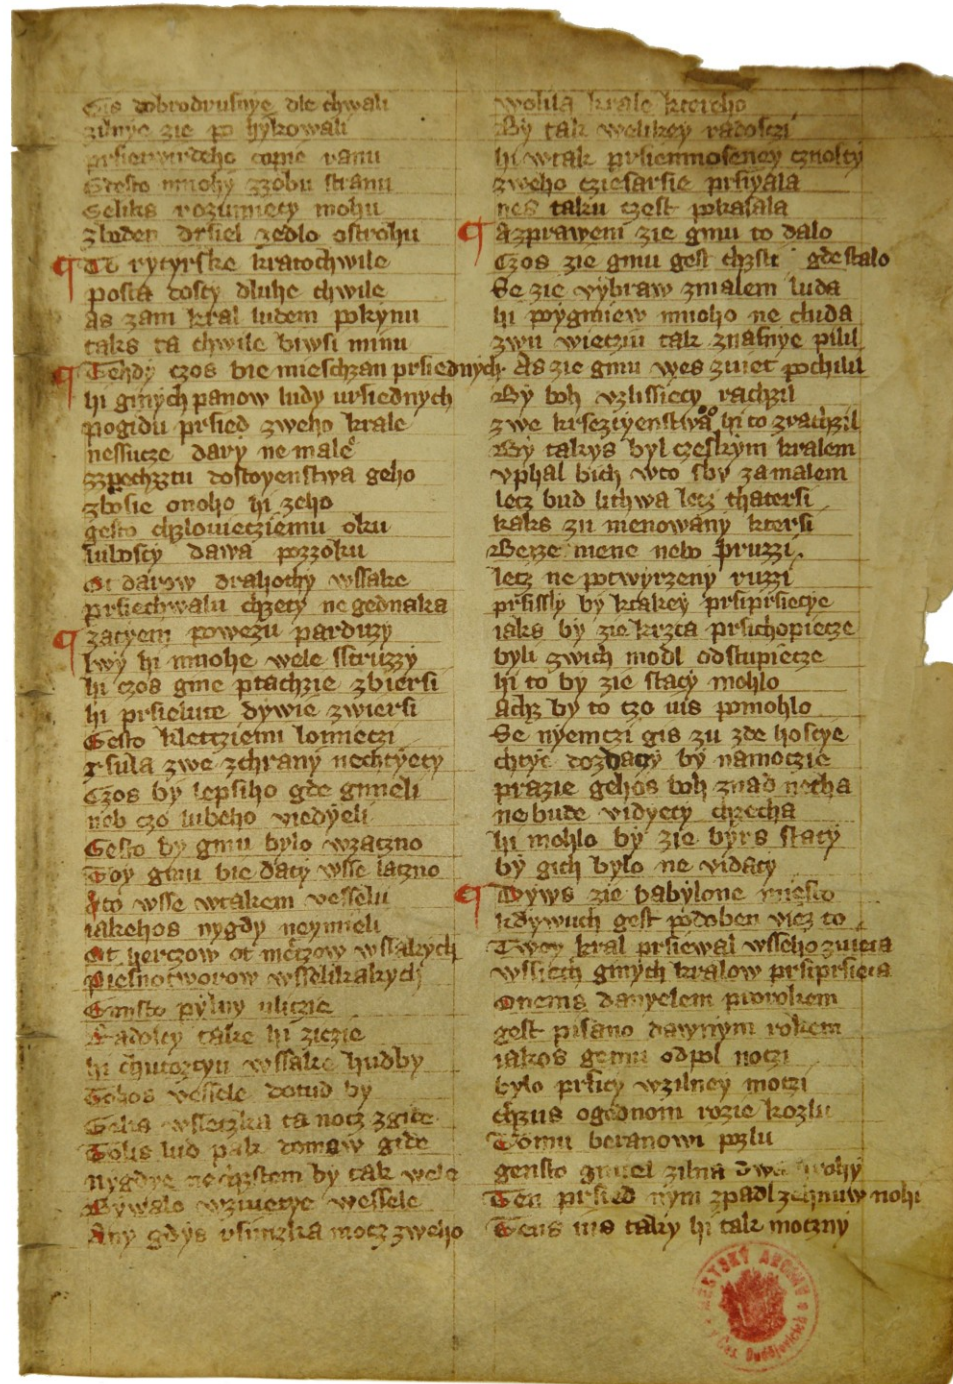 dobrodrusnye dle chwali
zilnye zie po hykowali
copie ranu
Gesto mnohy zzobu stranu
Geliks rozumiety mohu
zluden drsiel zedlo ostrohu
Te rytyrske kratochwile
posta dosty dluhe chwile
As zam kral ludem pokynu
taks ta chwile biwsi minu
Tehdy czos bie miesczan prsiednych
hi ginych panow ludy ursiednych
pogidu prsied zweho krale
nessucze dary ne male
zzpochzztu dostoyenstwa geho
zbosie onoho hi zeho
gesto chzlowiecziemu oku
lubosty dawa pozzoku
Ot darow drahochy wssake
prsiechwalu chzety ne gednaka
zatyem powezu parduzy
lwy hi mnohe wele sstruzzy
hi czos gme ptachzie zbiersi
hi prsielute dywie zwiersi
Gesto klettziemi lomiecz
rsula zwe zchrany nechtyety
Czos by lepsiho gde gimeli
neb czo lubeho viedyeli
Gesto by gmu bylo wzaczno
Toy gmu bie daty wsse laczno
A to wsse wtakem vesselu
iakehos nygdy neymieli
Ot herczow ot metzow wssakych
Piesnotworow wsselikakych
Gimsto pylny uliczie
Radosty take hi ziezie
hi chutoztyu wssake hudby
Tohos vessele dotud by
Geliks wssieczka ta notz zgide
Tolis lud pak domow gide
nygdye by tak wele
Bywalo wzwietye wessele
Any gdys usinczka motz zweho
wolila krale ktereho
By tak welikey radosczi
hi wtak prsiemnoseney cznosty
zweho cziesarsie prsiyala
nes taku czest pokasala
Azpraweni zie gmu to dalo
Czos zie gmu gest chzsti gdestalo
Se zie vybraw zmalem luda
hi poygmiew mnoho ne chuda
zwu wieczin tak znasnye pilil
As zie gmu wes zwiet pochilil
By boh uzlissiecy rachzil
zwe krseztyenstwa hi to zrachzil
By takys byl czeskym kralem
vphal bich wto sby zamalem
letz bud lithwa letz thatersi
kaks zu menowany ktersi
Bezze mene nebo pruzzi
letz ne potwyrzeny ruzzi
prsissly by ktakey prsiprsietye
iaks by zie krzta prsichopiecze
byli zwich modl odstupiecze
hi to by zie staty mohlo
achz by to czo uis pomohlo
Se nyemczi gis zu zde hostye
chtye dozdaty by namoczie
prazie gehos boh znad necha
nebude vidyety chzecha
hi mohlo by zie byrs staty
by gich bylo ne vidaty
Dyws zie babylone miesto
kdywuch gest podoben viez to
Twoy kral prsiewal wsseho zwieta
wssiech ginych kralow prsiprsieta
Onems danyelem prorokem
gest pisano dawnym rokem
iakos gemu odpol noczi
bylo prsity wzilney moczi
chzus ogednom rozie kozlu
Tomu beranowi pzlu
gensto gmiel zilna dwa rohy
Ten prsied nym zpadl zehnuw nohi
Tens uis taky hi tak moczny
MĚSTSKÝ ARCHIV v Čes. Budějovicích